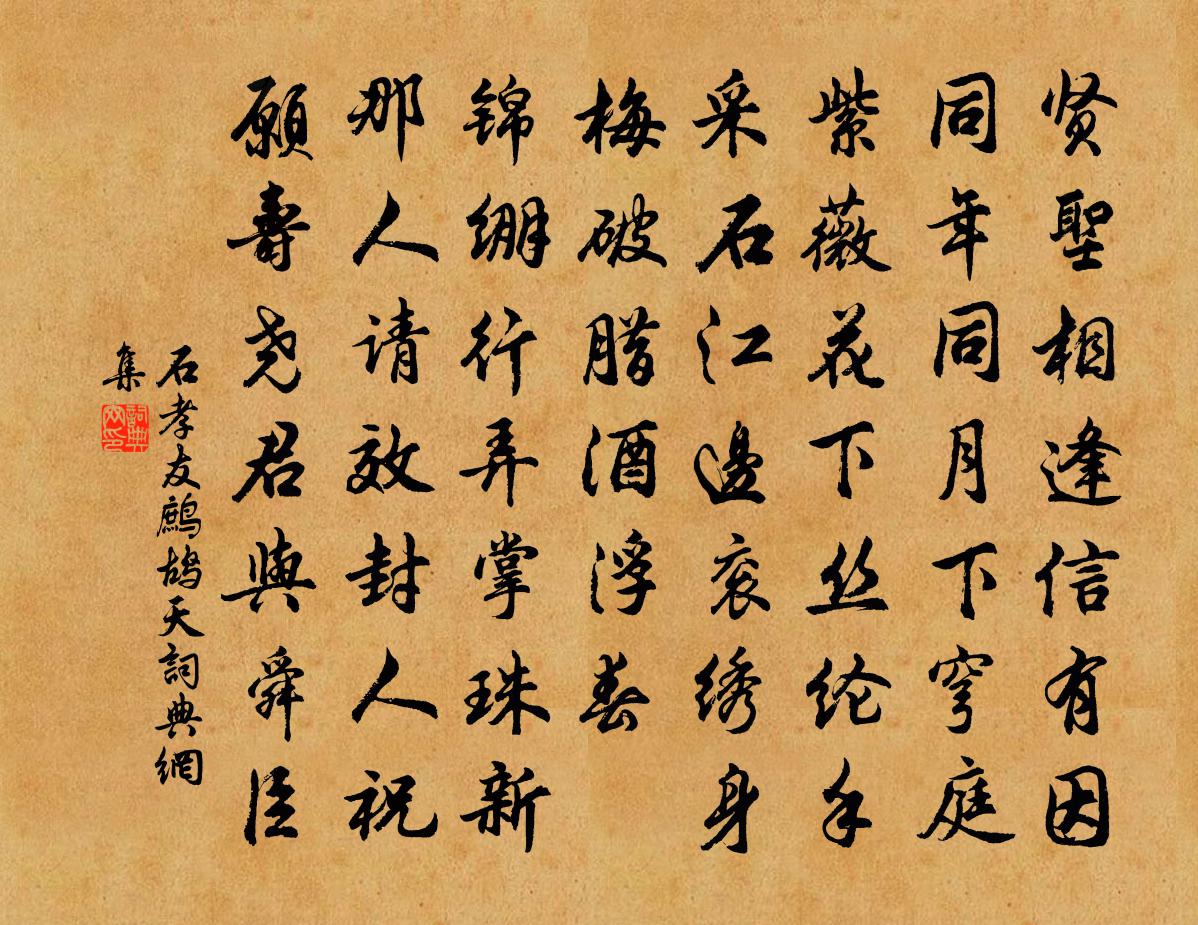 贤聖相逢信有因
同年同月下穹庭
紫薇花下丝纶手
采石江邊衮绣身
梅破腊酒浮春
锦绷行弄掌珠新
那人请效封人祝
願壽尧君與舜臣
石孝友鷓鴣天詞典網
集
詞典網印